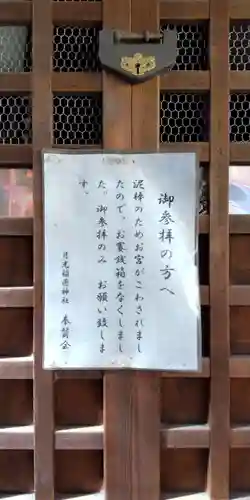 御参拝の方へ
泥棒のためお宮がこわされまし
たので、お賽銭箱をなくしまし
た。御参拝のみ お願い致しま
す。
月光稲荷神社 奉賛会